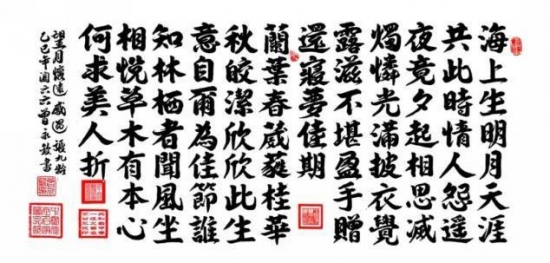 海上生明月天涯
共此時情人怨遥
夜竟夕起相思滅
燭憐光滿披衣覺
露滋不堪盈手贈
還寢夢佳期
蘭葉春葳蕤桂華
秋皎潔欣欣此生
意自爾為佳節誰
知林栖者聞風坐
相悦草木有本心
何求美人折
望月懷遠 感遇 張九齡
乙巳年閏六六曾永書